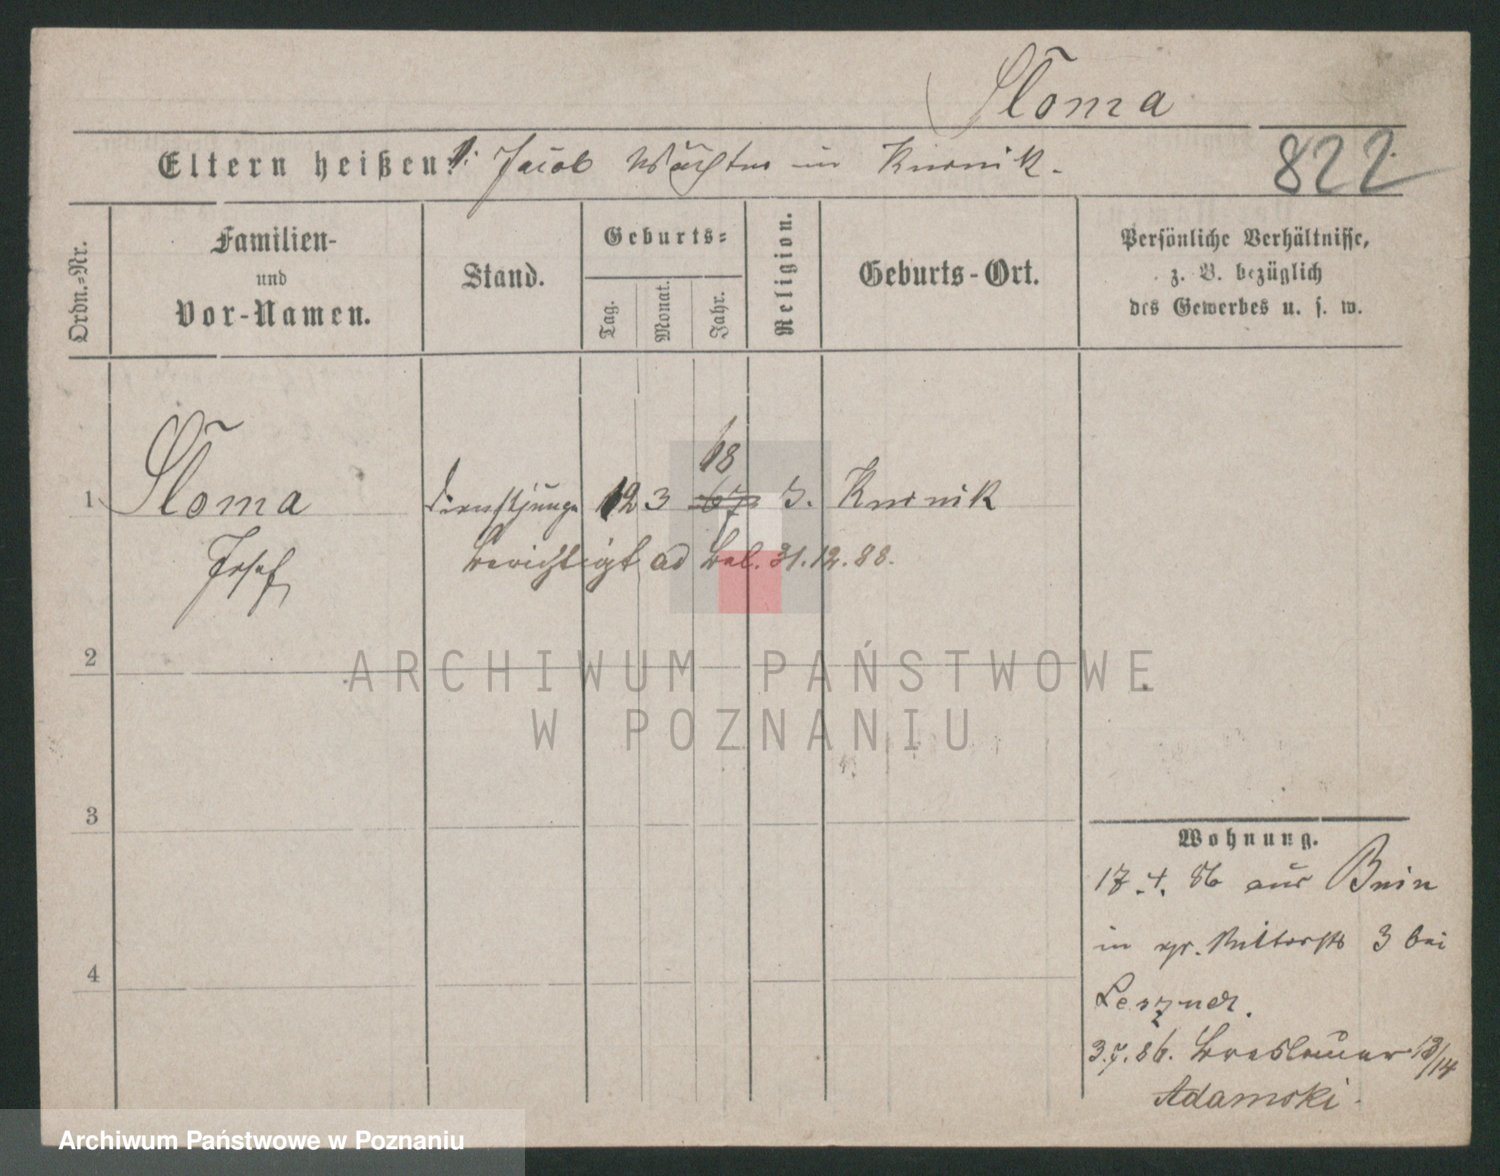 Słoma
Eltern heißen: Jacob Wächter in Kurnik.
822
Ordn.-Nr.
Familien-
und
Vor-Namen.
Stand.
Geburts-
Tag.
Monat.
Jahr.
Religion.
Geburts-Ort.
Persönliche Verhältnisse,
z. B. bezüglich
des Gewerbes u. s. w.
68
1 Słoma Dienstjunge 12 3 67 Kurnik
Josef
berichtigt ad Bel. 31.12.88.
2
ARCHIWUM PAŃSTWOWE
W POZNANIU
3
Wohnung.
17.4.86 aus Bnin
in gr. Ritterstr 3 bei
4
3.7.86. Breslauer 13/14
Adamski.
Archiwum Państwowe w Poznaniu